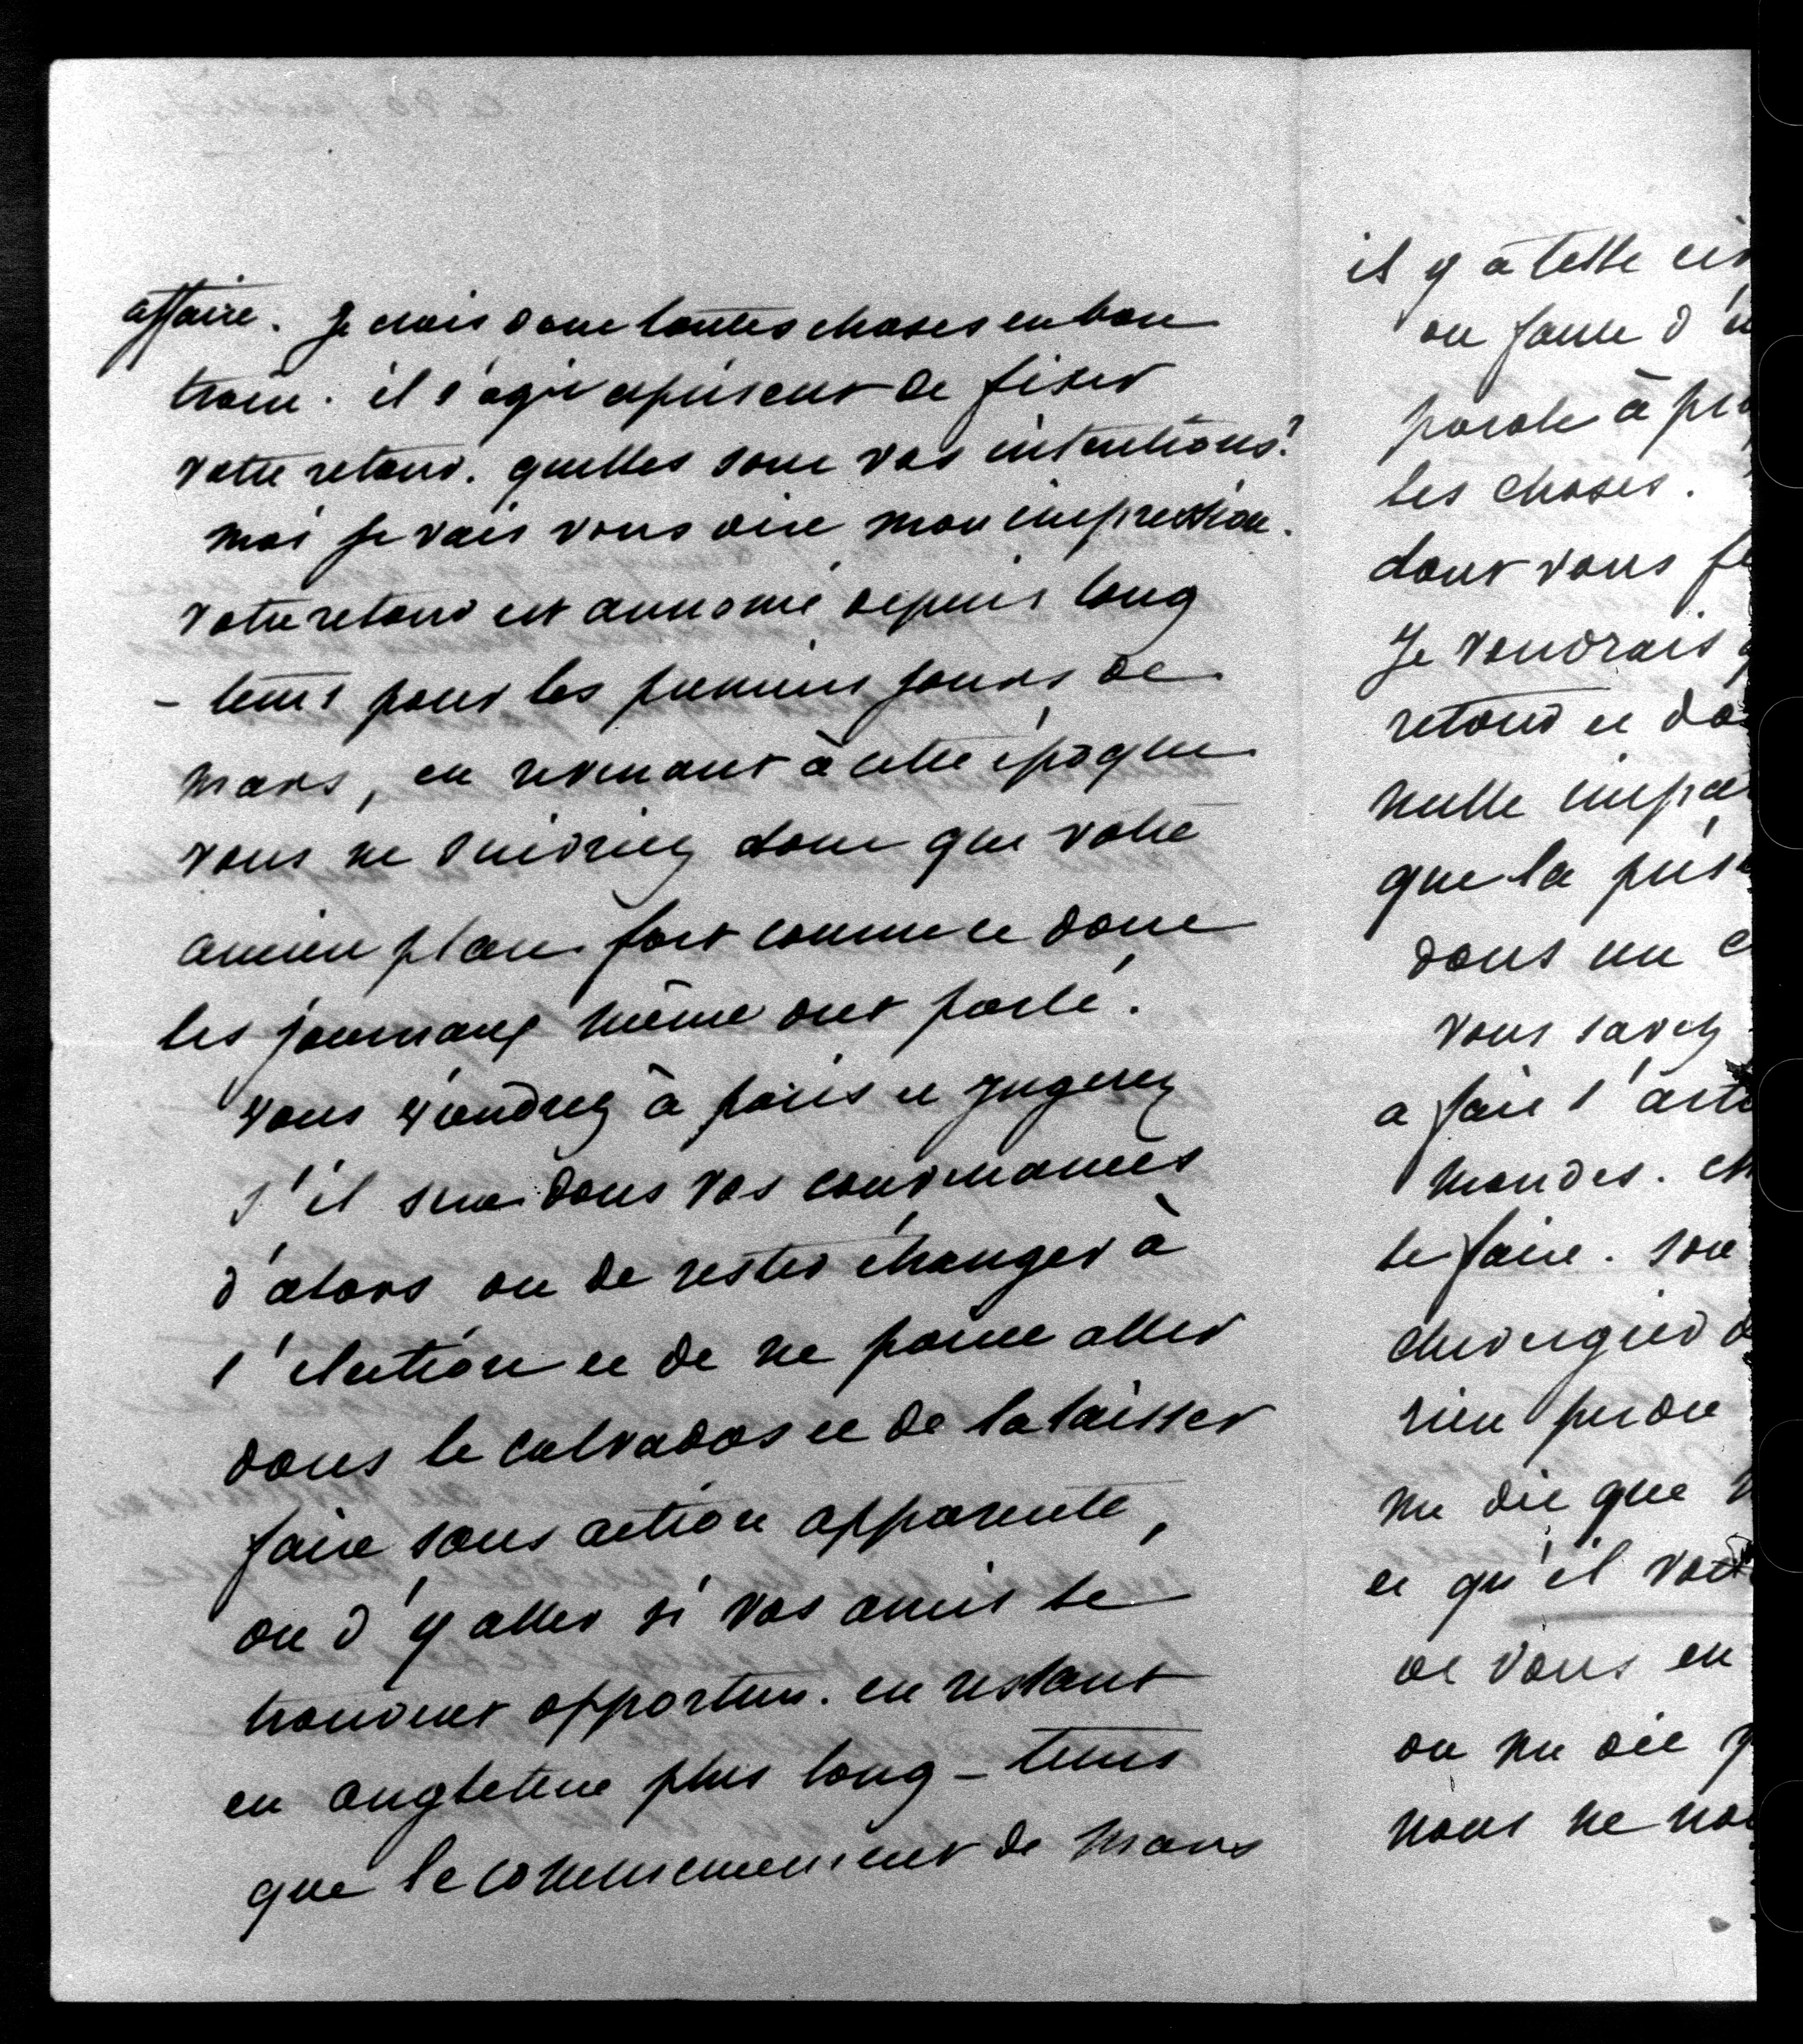 affaire. Je crois donc toutes choses en bon
train. il s'agit à présent de fixer
votre retour. quelles sont vos intentions?
moi je vais vous dire mon impression.
votre retour est annoncé depuis long
- tems pour les premiers jours de
mars, en revenant à cette époque
vous ne suivriez donc que votre
ancien plan fort connu et dont
les journaux même ont parlé.
vous viendrez à paris et jugerez
s'il sera dans vos convenances
d'alors ou de rester étranger à
l'élection et de ne point aller
dans le calvados et de la laisser
faire sans action apparente,
ou d'y aller si vos amis le
trouvent opportun. en restant
en angleterre plus long-tems
que le commencement de mars
il y a telle
ou faute d'
parole à
les choses.
dont vous
Je voudrais
retour et
nulle
que la
dans un
vous savez
a fait l'
mondes.
le faire. son
rien perdre
me dit que
et qu'il
de vous en
on me dit
nous ne